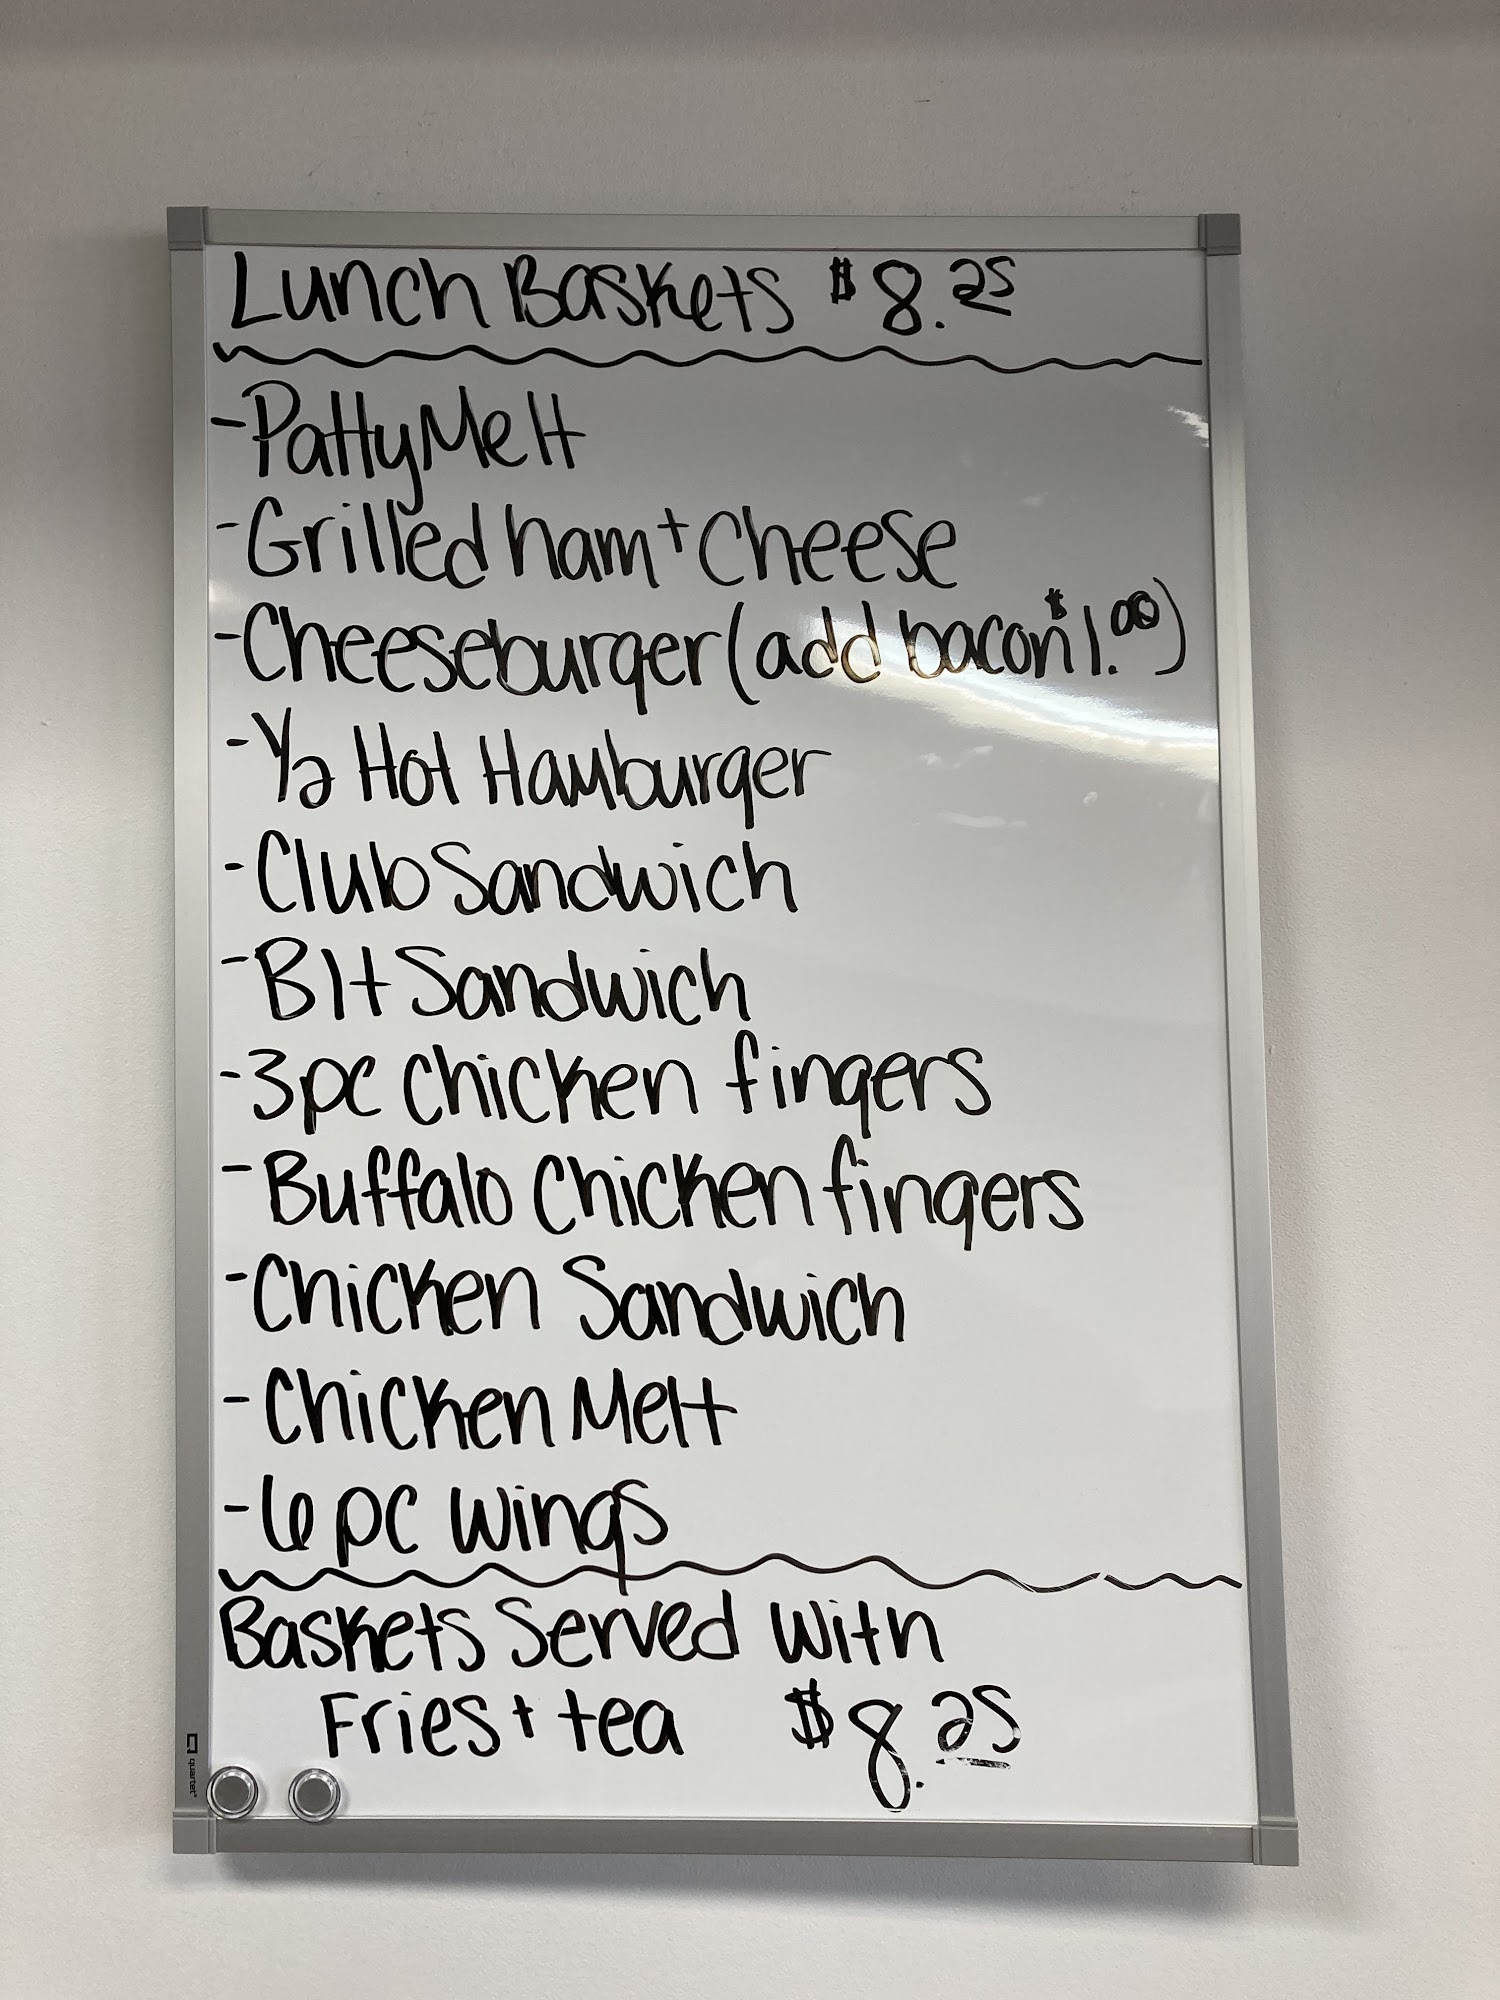 Lunch Baskets $8.25
-Patty Melt
-Grilled ham + Cheese
-Cheeseburger (add bacon $1.00)
-1/2 Hot Hamburger
-Club Sandwich
-Blt Sandwich
-3pc chicken fingers
-Buffalo Chicken fingers
-Chicken Sandwich
-Chicken Melt
-6 pc wings
Baskets Served with
Fries + tea $8.25
quartet